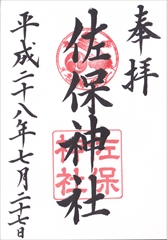 奉拝
佐保神社
佐保
神社
平成二十八年七月二十七日